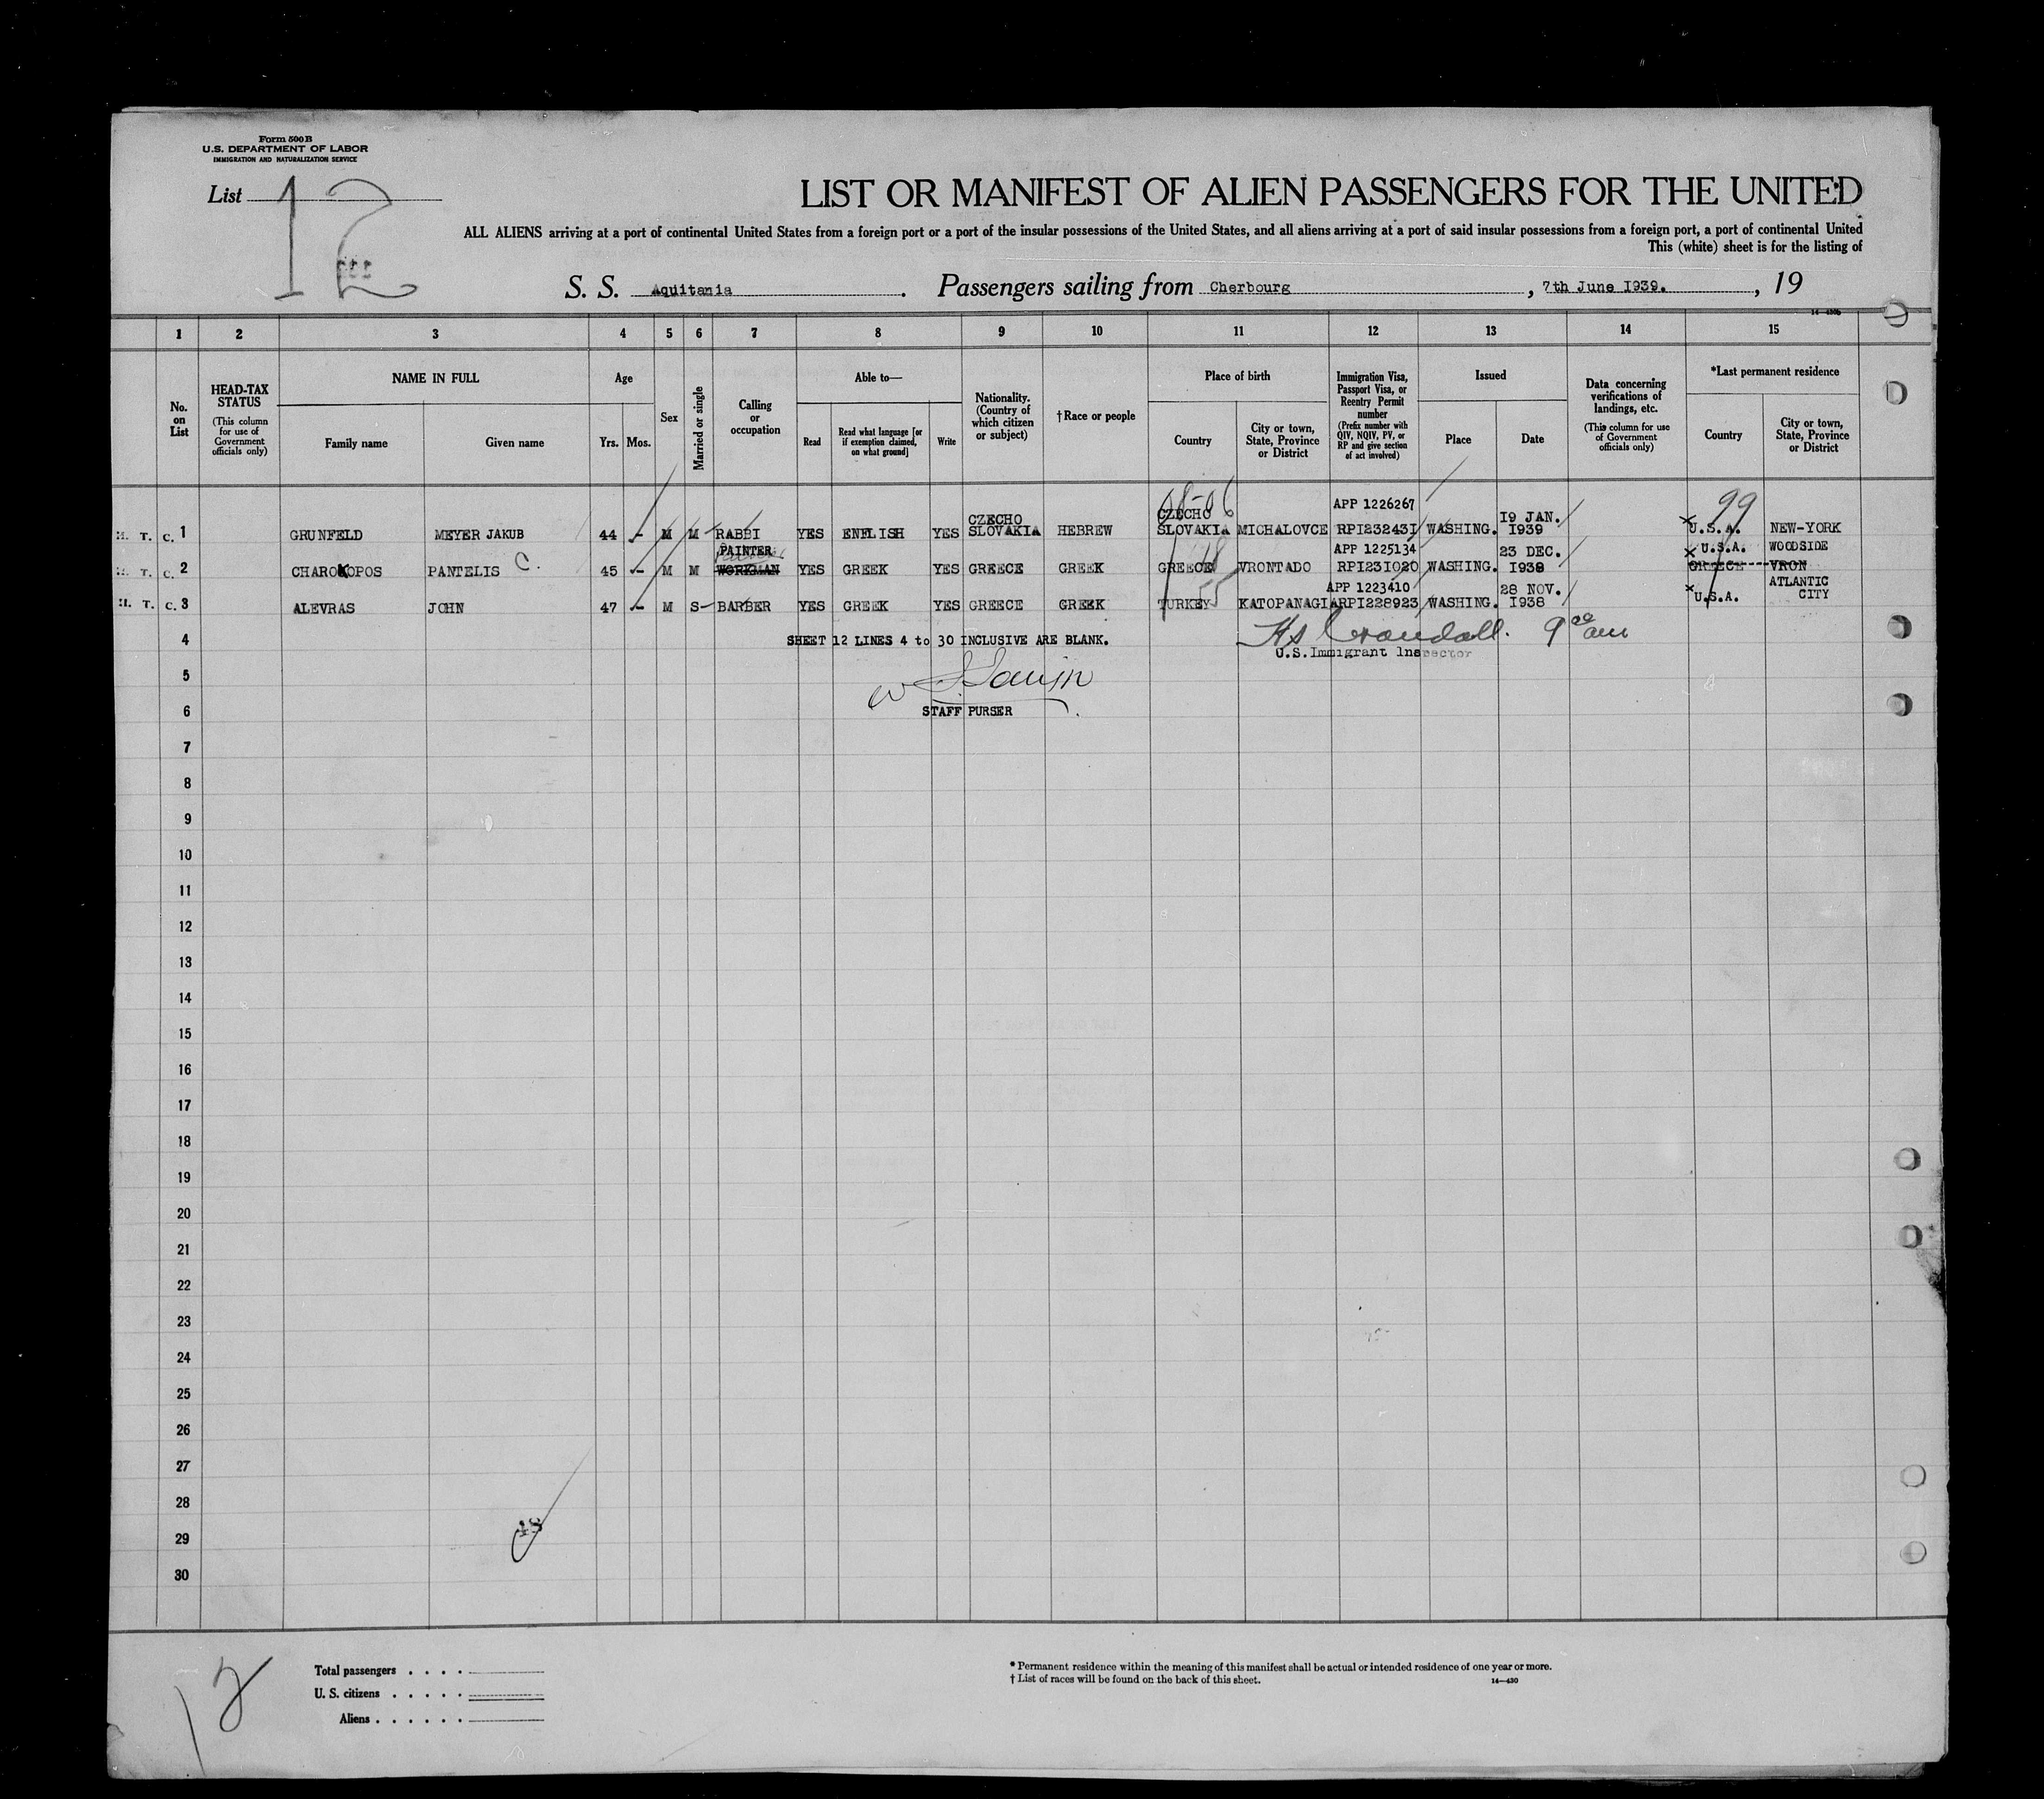 Form 500 B
U.S. DEPARTMENT OF LABOR
IMMIGRATION AND NATURALIZATION SERVICE
List 12
LIST OR MANIFEST OF ALIEN PASSENGERS FOR THE UNITED
ALL ALIENS arriving at a port of continental United States from a foreign port or a port of the insular possessions of the United States, and all aliens arriving at a port of said insular possessions from a foreign port, a port of continental United
This (white) sheet is for the listing of
S. S. Aquitania. Passengers sailing from Cherbourg, 7th June 1939., 19
1 2 3 4 5 6 7 8 9 10 11 12 13 14 15
No. on List
HEAD-TAX STATUS (This column for use of Government officials only)
NAME IN FULL
Family name
Given name
Age
Yrs. Mos.
Sex
Married or single
Calling or occupation
Able to—
Read
Read what language [or if exemption claimed, on what ground]
Write
Nationality. (Country of which citizen or subject)
†Race or people
Place of birth
Country
City or town, State, Province or District
Immigration Visa, Passport Visa, or Reentry Permit number (Prefix number with QIV, NQIV, PV, or RP and give section of act involved)
Issued
Place
Date
Data concerning verifications of landings, etc. (This column for use of Government officials only)
*Last permanent residence
Country
City or town, State, Province or District
08-06 99
APP 1226267
CZECHO CZECHO 19 JAN.
T. C. 1 GRUNFELD MEYER JAKUB 44 - M M RABBI YES ENLISH YES SLOVAKIA HEBREW SLOVAKIA MICHALOVCE RPI232431 WASHING. 1939 U.S.A. NEW-YORK
PAINTER APP 1225134 23 DEC. U.S.A. WOODSIDE
T. C. 2 CHAROKOPOS PANTELIS C. 45 - M M WORKMAN YES GREEK YES GREECE GREEK GREECE VRONTADO RPI231020 WASHING. 1938 GREECE VRON
APP 1223410 28 NOV. ATLANTIC
T. C. 3 ALEVRAS JOHN 47 - M S BARBER YES GREEK YES GREECE GREEK TURKEY KATOPANAGIA RPI228923 WASHING. 1938 U.S.A. CITY
4 SHEET 12 LINES 4 to 30 INCLUSIVE ARE BLANK. Crandall. 9 00 am
U.S. Immigrant Inspector
5
6 STAFF PURSER
7
8
9
10
11
12
13
14
15
16
17
18
19
20
21
22
23
24
25
26
27
28
29
30
12
Total passengers . . . .
U. S. citizens . . . . .
Aliens . . . . . .
* Permanent residence within the meaning of this manifest shall be actual or intended residence of one year or more.
† List of races will be found on the back of this sheet. 14—430